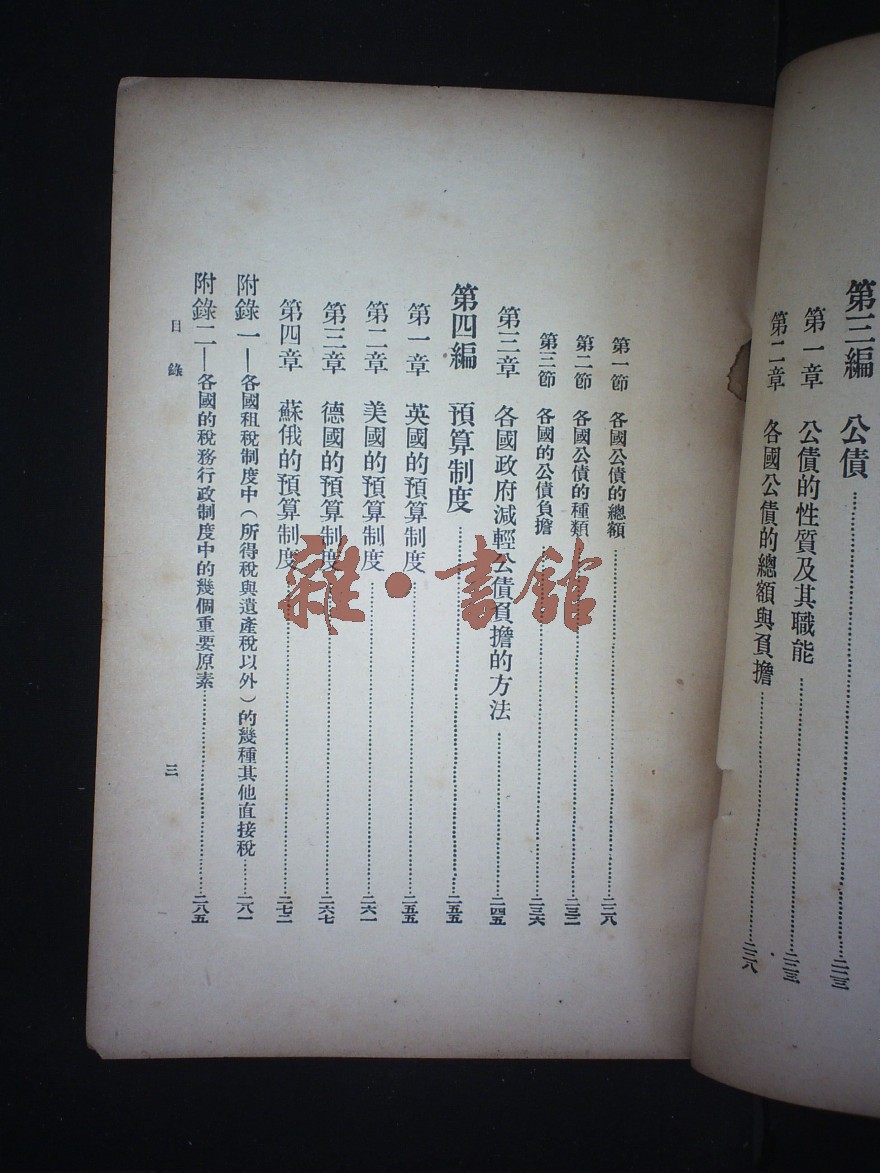 第三編　公債……二二三
第一章　公債的性質及其職能……二二三
第二章　各國公債的總額與負擔……二二八
第一節　各國公債的總額……二二八
第二節　各國公債的種類……二三二
第三節　各國的公債負擔……二三六
第三章　各國政府減輕公債負擔的方法……二四五
第四編　預算制度……二五五
第一章　英國的預算制度……二五五
第二章　美國的預算制度……二六一
第三章　德國的預算制度……二六七
第四章　蘇俄的預算制度……二七二
附錄一—各國租稅制度中（所得稅與遺產稅以外）的幾種其他直接稅……二八一
附錄二—各國的稅務行政制度中的幾個重要原素……二八五
目錄
三
雜·書館